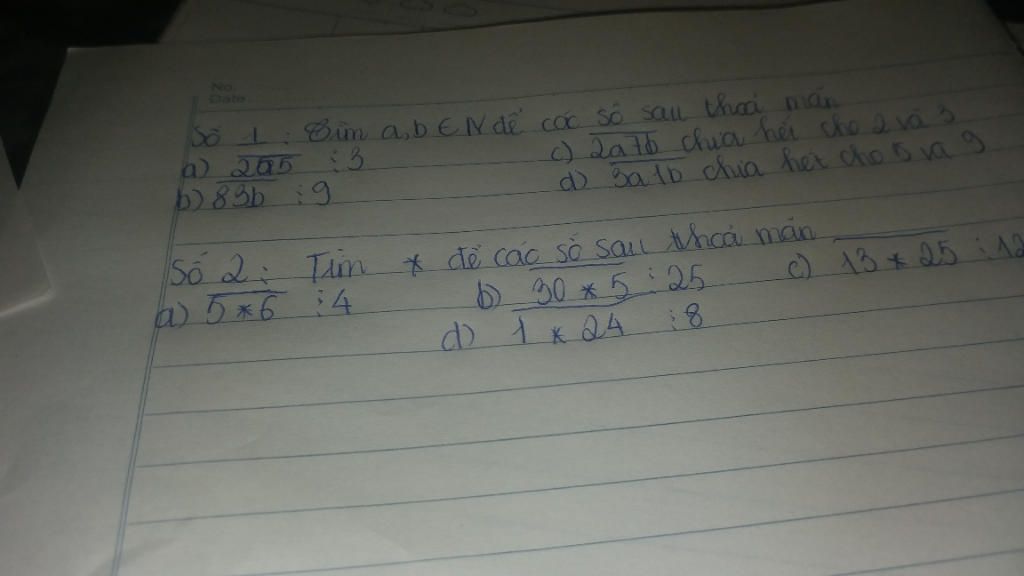 No.
Date
Số 1 : Tìm a, b ∈ N để các số sau thoả mãn
a) 2a5 ⋮ 3 c) 2a7b chia hết cho 2 và 3
b) 83b ⋮ 9 d) 3a1b chia hết cho 5 và 9
Số 2 : Tìm * để các số sau thoả mãn
a) 5*6 ⋮ 4 b) 30*5 ⋮ 25 c) 13*25 ⋮
d) 1*24 ⋮ 8